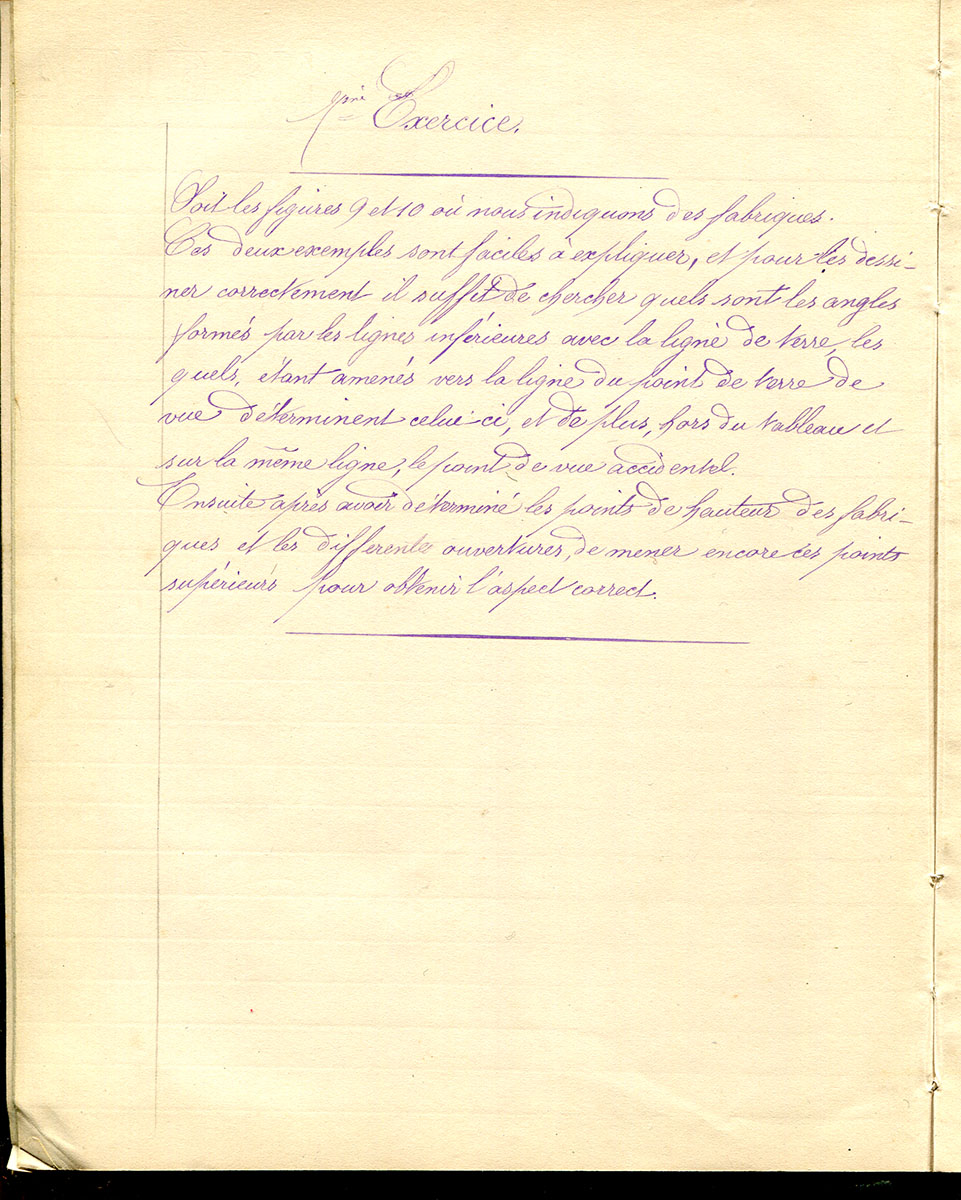 Exercice.
Soit les figures 9 et 10 où nous indiquons des fabriques.
Ces deux exemples sont faciles à expliquer, et pour les dessi-
ner correctement il suffit de chercher quels sont les angles
formés par les lignes inférieures avec la ligne de terre, les
quels, étant amenés vers la ligne du point de terre de
vue déterminent celui-ci, et de plus, hors du tableau et
sur la même ligne, le point de vue accidentel.
Ensuite après avoir déterminé les points de hauteur des fabri-
ques et les differentes ouvertures, de mener encore ces points
supérieurs pour obtenir l'aspect correct.